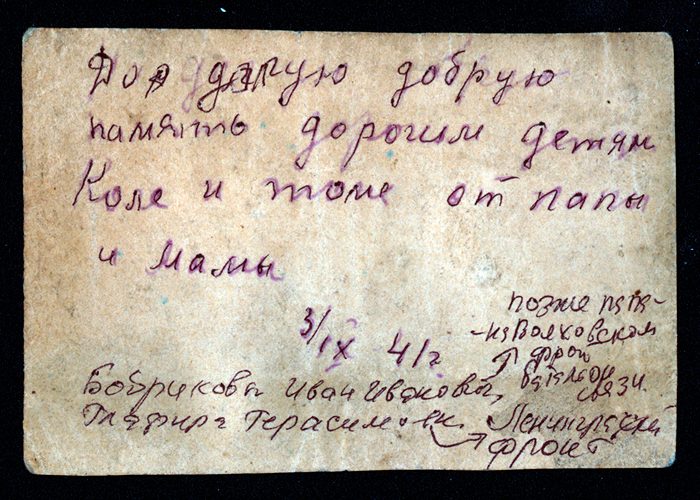 Дол долгую добрую
память дорогим детям
Коле и томе от папы
и мамы
3/IX 41г
позже папа-
-на Волховском
фрон
батальон
связи.
Бобрикова Иван Иванович,
Глафира Герасимовн.
Ленинградский
фронт